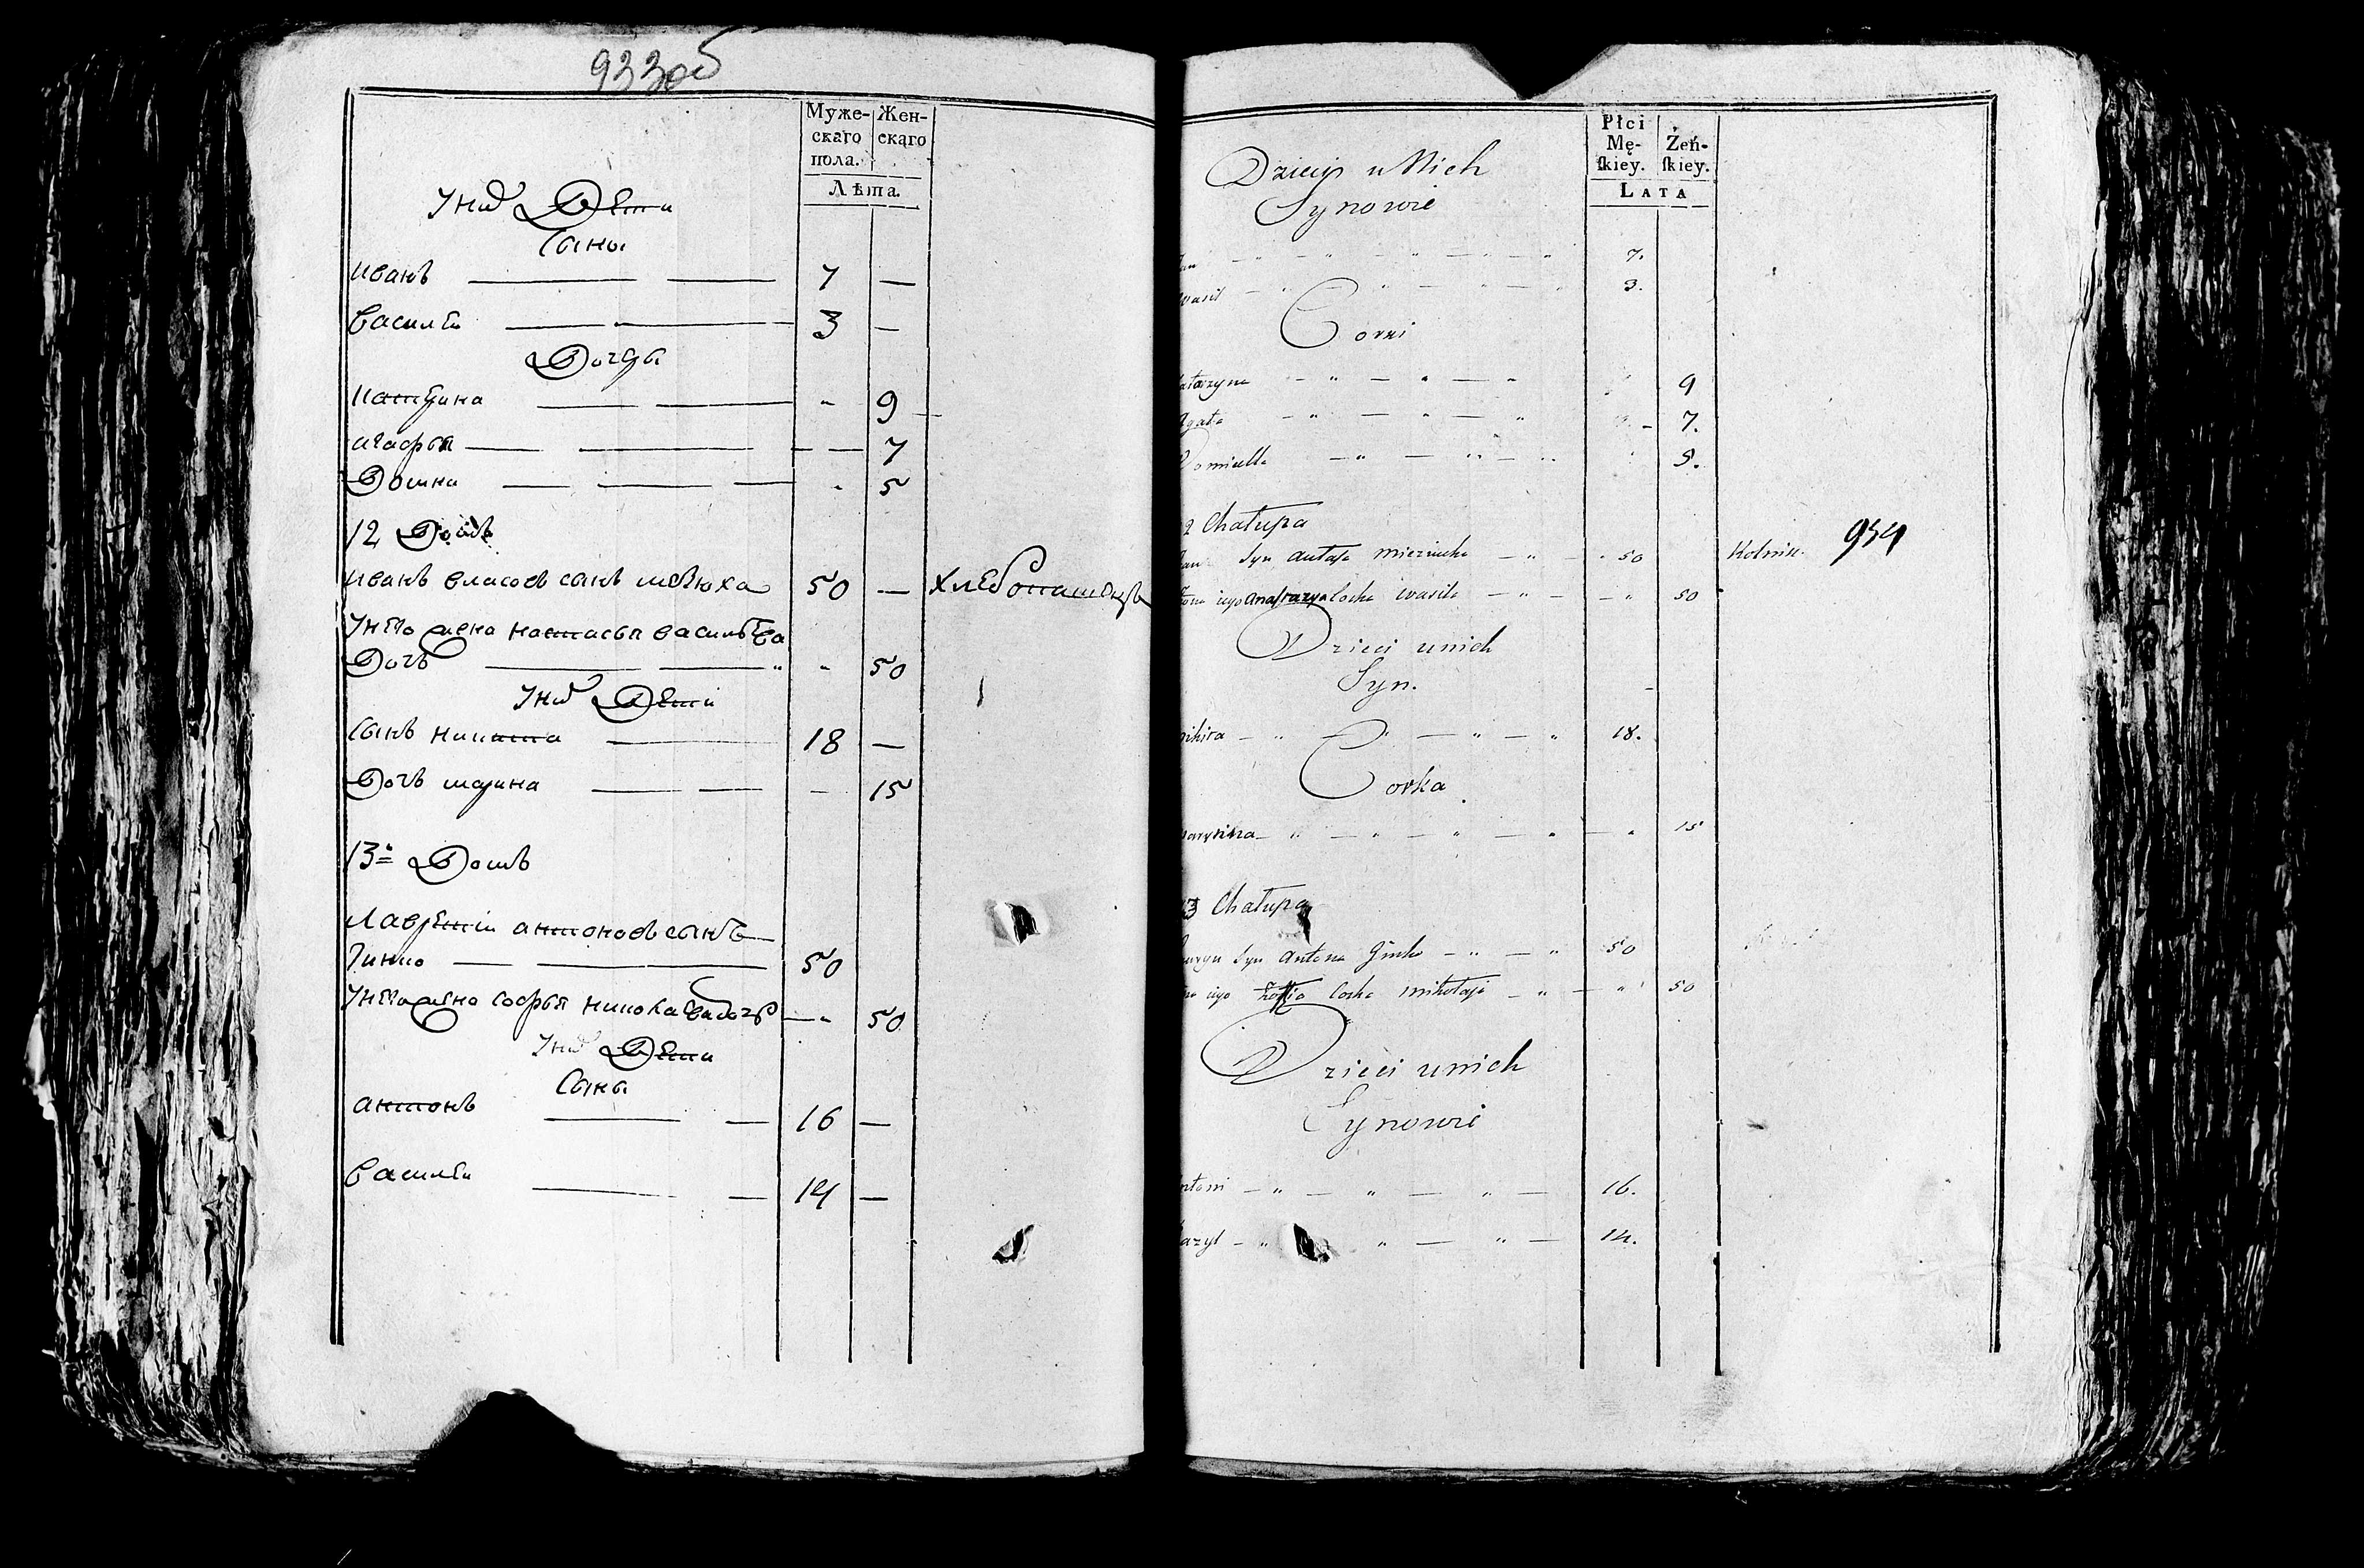 933об
Муже-
скаго
пола.
Жен-
скаго
Лѣта.
Унихъ Дети
Сыны
иванъ 7 —
василеи 3 —
Дочери
катерина " 9
агафья — 7
Домна " 5
12 Домъ
иванъ власовъ сынъ 50 — хлебопашецъ
Унего жена настасья васильева
Дочь " 50
Унихъ Дети
Сынъ никита 18 —
Дочь марина — 15
13й Домъ
Лаврентии антоновъ сынъ
50
Унего жена софья николаева дочь — " 50
Унихъ Дети
Сыны
антонъ 16 —
василеи 14 —
Płci
Mę-
skiey.
Żeń-
skiey.
LATA
Dzieci u Nich
Synowie
Jan 7.
wasil 3.
Corki
atarzyna 9
Agata 7.
Domicella 5.
2 Chałupa
Jan Syn 50 Rolnik. 934
Żona iego anastazya Corka wasila 50
Dzieci unich
Syn.
nikita 18.
Corka
marynna 15
13 Chałupa
Syn Antona 50
iego Zofia Corka mikołaja 50
Dzieci unich
Synowie
ntoni 16.
azyl 14.